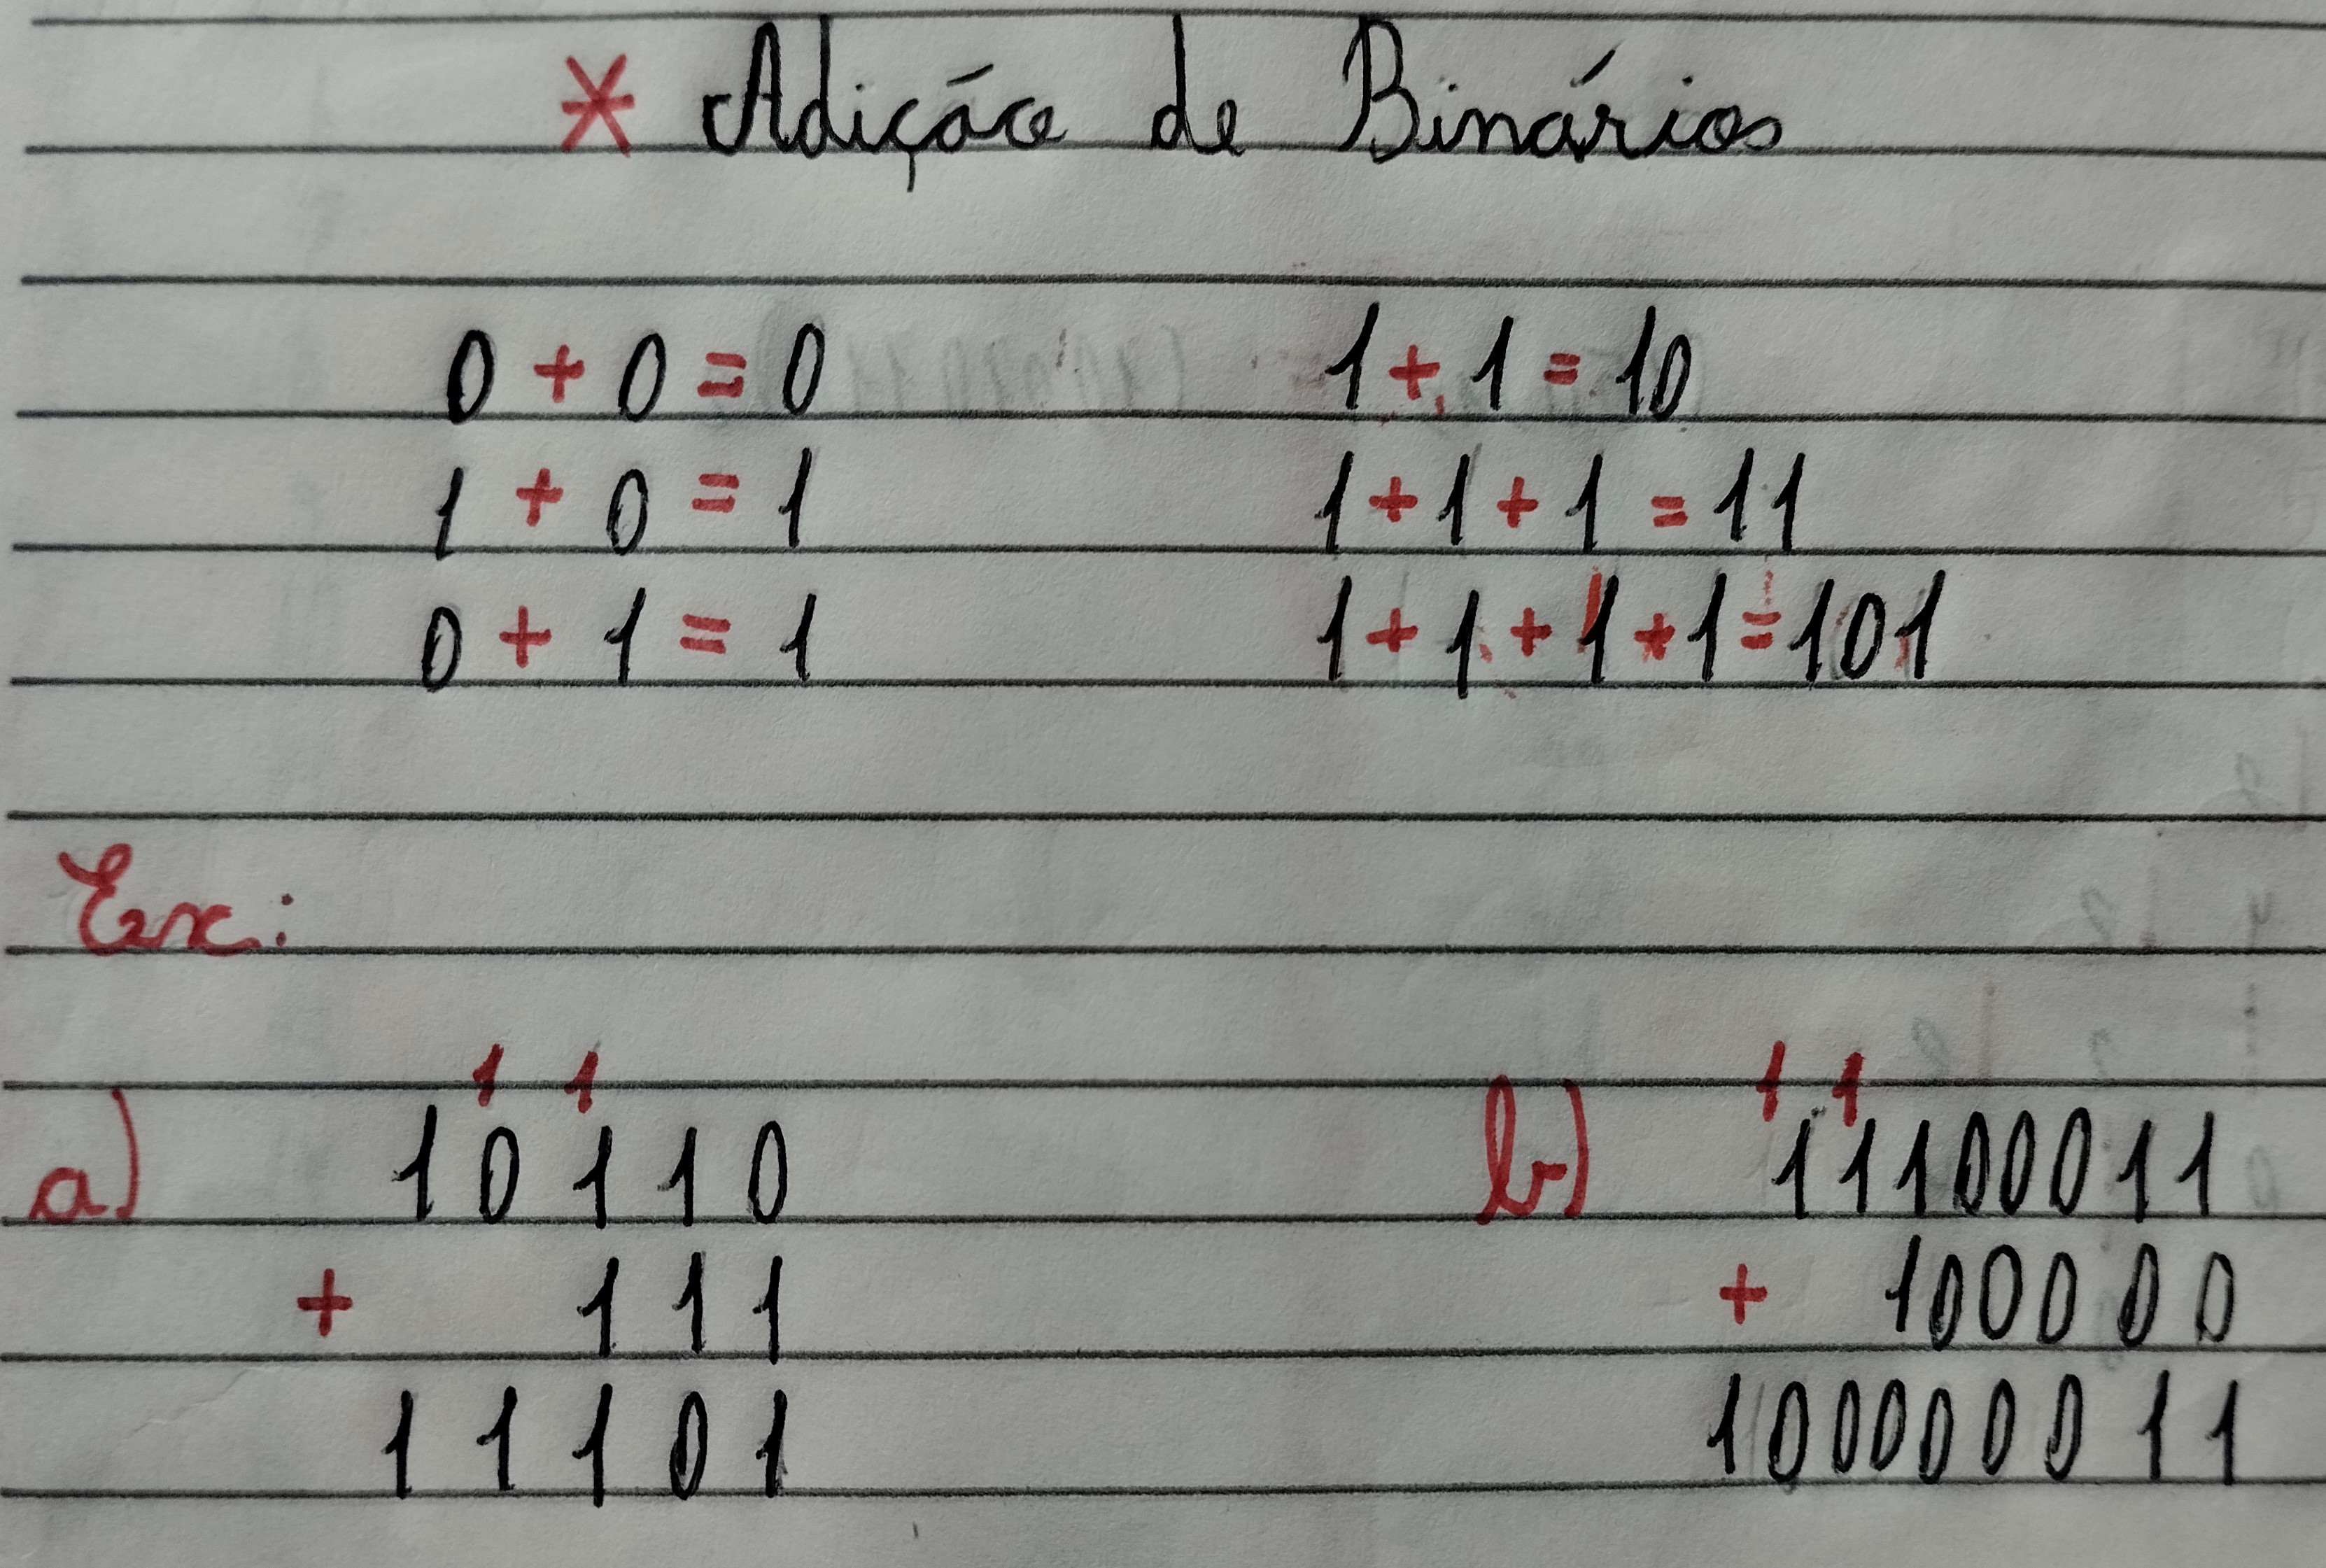 * Adição de Binários
0 + 0 = 0 1 + 1 = 10
1 + 0 = 1 1 + 1 + 1 = 11
0 + 1 = 1 1 + 1 + 1 + 1 = 101
Ex:
1 1 1 1
a) 10110 b) 11100011
+ 111 + 100000
11101 100000011